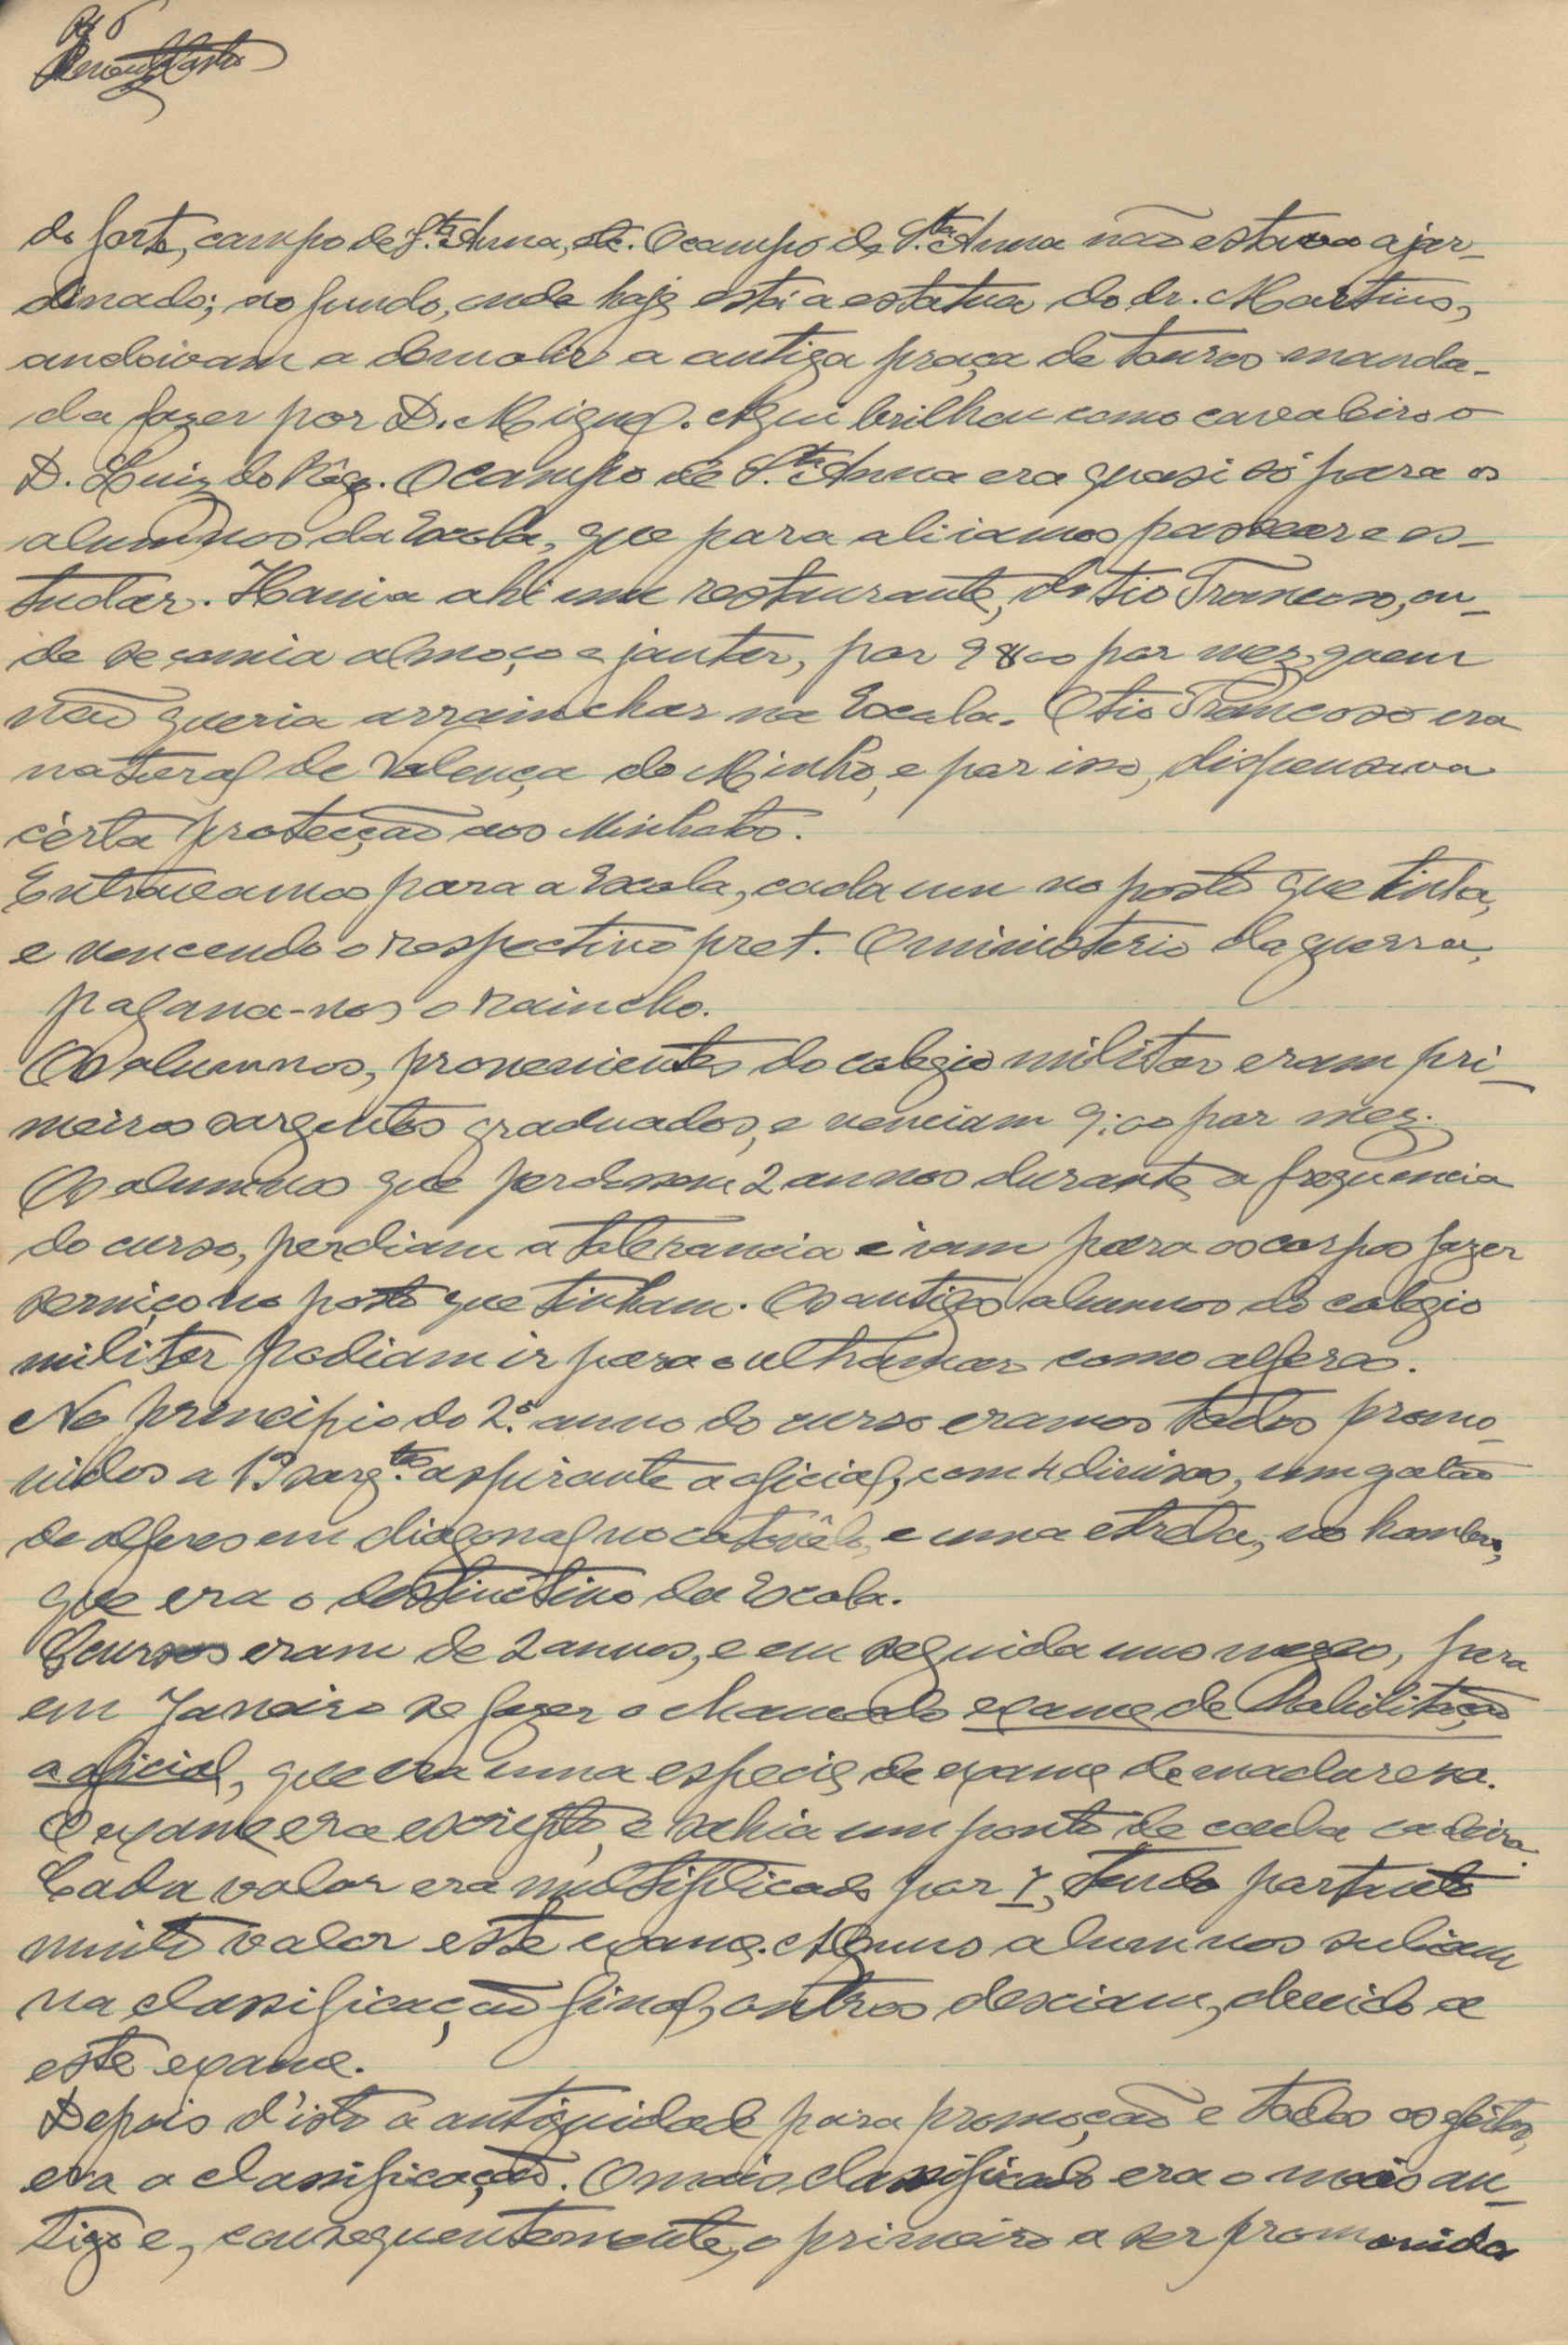 do forte, campo de S.ta Anna, etc. O campo de S.ta Anna não estava ajar-
dinado; no fundo, onde hoje está a estatua do dr. Martins,
andavam a demolir a antiga praça de touros manda-
da fazer por D. Miguel. Aqui brilhou como cavaleiro o
D. Luiz do Rêgo. O campo de S.ta Anna era quasi só para os
alumnos da Escola, que para ali iamos passear e es-
tudar. Havia ahi um restaurante, do tio Trancoso, on-
de se comia almoço e jantar, por 9$00 por mez, quem
não queria arranchar na Escola. O tio Trancoso era
natural de Valença do Minho, e por isso, dispensava
cérta protecção aos Minhotos.
Entravamos para a Escola, cada um no posto que tinha,
e vencendo o respectivo pret. O ministerio da guerra,
pagava-nos o rancho.
Os alumnos, provenientes do colegio militar eram pri-
meiros sargentos graduados, e venciam 9:00 por mez.
Os alumnos que perdessem 2 annos durante a frequencia
do curso, perdiam a tolerancia e iam para os corpos fazer
serviço no posto que tinham. Os antigos alumnos do colegio
militar podiam ir para o ultramar como alferes.
No principio do 2.º anno do curso eramos todos promo-
vidos a 1.os sarg.tos aspirante a oficial, com 4 divisas, um galão
de alferes em diagonal no canhão, e uma estrela, no hombro,
que era o destinctivo da Escola.
Os cursos eram de 2 annos, e em seguida uns mezes, para
em Janeiro se fazer o chamado exame de habilitação
a oficial, que era uma especie de exame de madureza.
O exame era escripto, e sahia um ponto de cada cadeira.
Cada valor era multiplicado por 7, tendo portanto
muito valor este exame. Alguns alumnos subiam
na classificação final, outros desciam, devido a
este exame.
Depois d'isto a antiguidade para promoção e todos os efeitos,
era a classificação. O mais classificado era o mais an-
tigo e, consequentemente, o primeiro a ser promovido